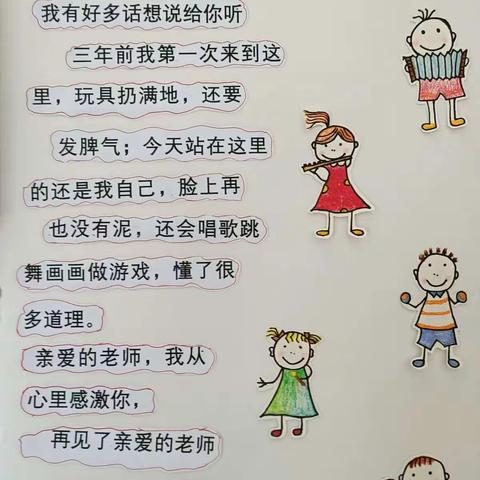 我有好多话想说给你听
三年前我第一次来到这
里，玩具扔满地，还要
发脾气；今天站在这里
的还是我自己，脸上再
也没有泥，还会唱歌跳
舞画画做游戏，懂了很
多道理。
亲爱的老师，我从
心里感激你，
再见了亲爱的老师